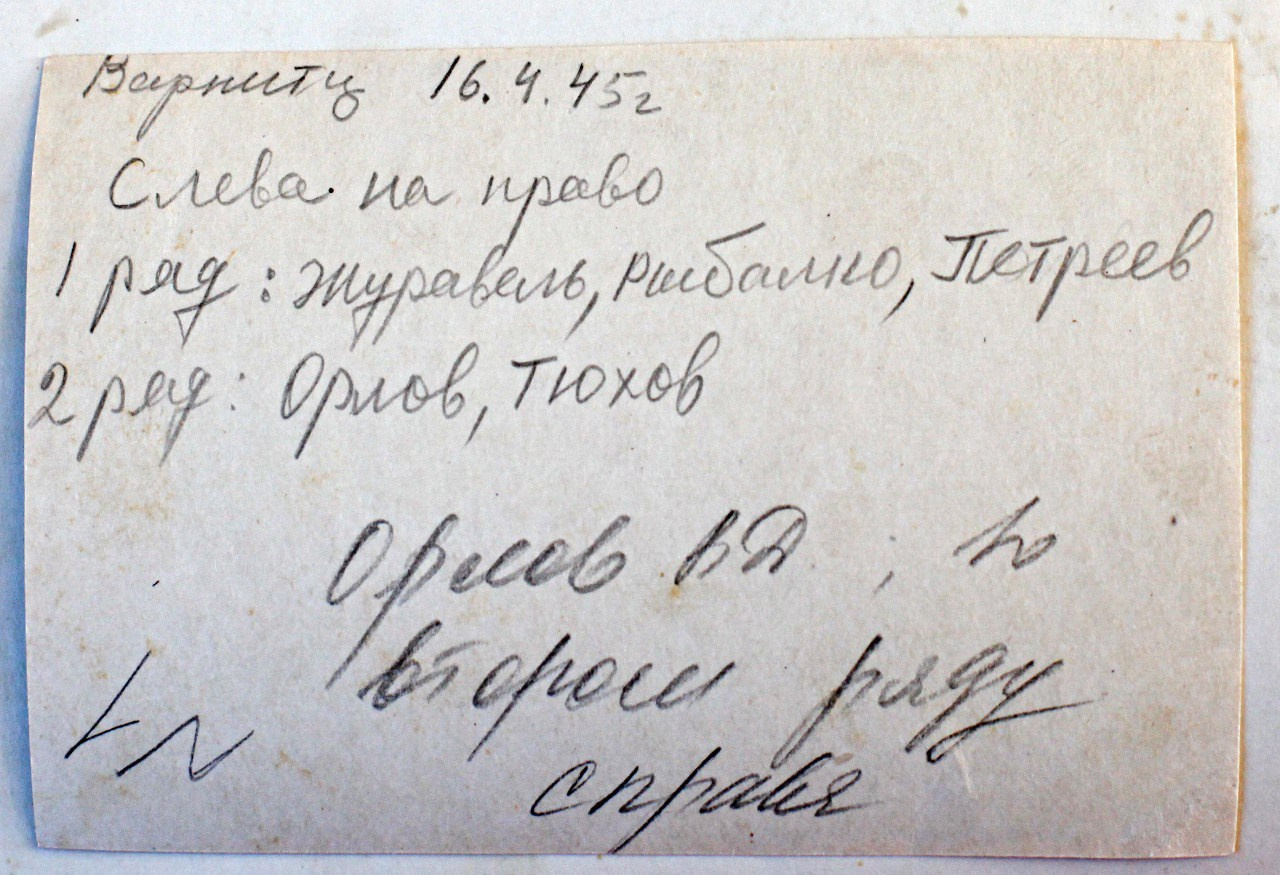 Варнитц 16.4.45г
Слева на право
1 ряд: Журавель, Рыбалко, Петреев
2 ряд: Орлов, Тюхов
Орлов ВД, во
втором ряду
справа